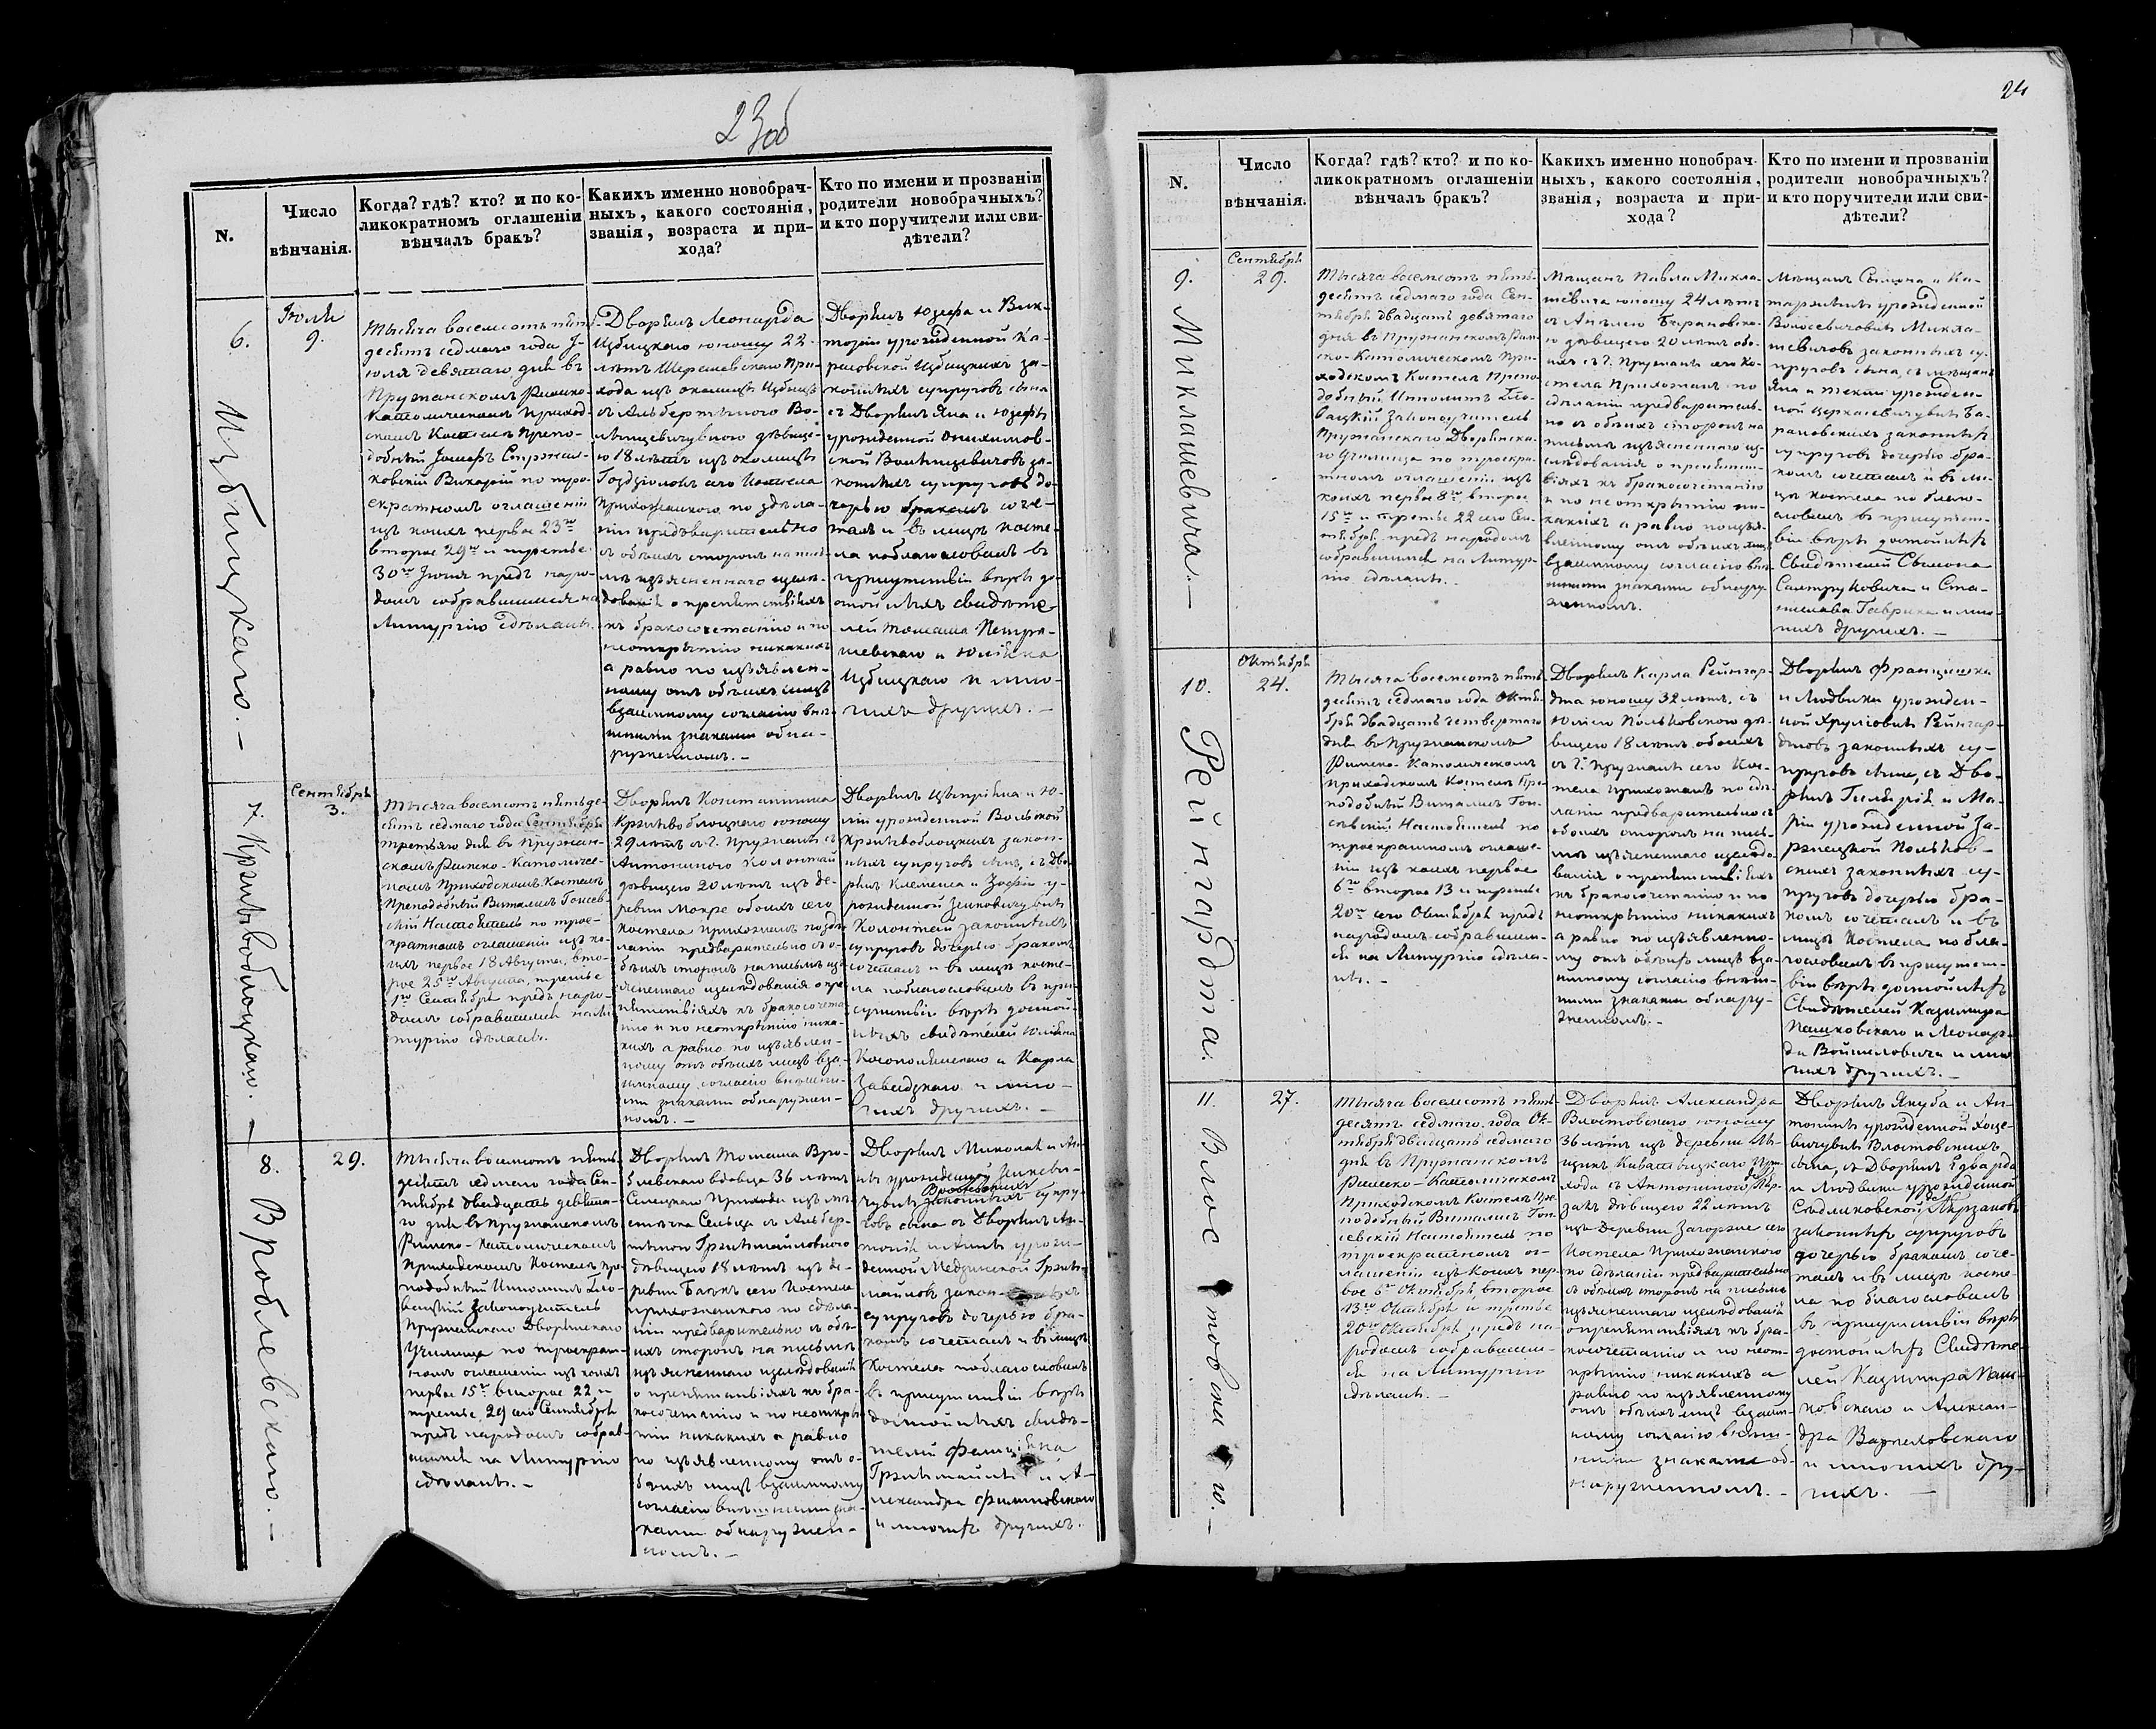 23об
N.
Число
вѣнчанія.
Когда? гдѣ? кто? и по ко-
ликократномъ оглашеніи
вѣнчалъ бракъ?
Какихъ именно новобрач-
ныхъ, какого состоянія,
званія, возраста и при-
хода?
Кто по имени и прозванію
родители новобрачныхъ?
и кто поручители или сви-
дѣтели?
6.
Избицкаго. —
Іюля
9.
Тысяча восемсотъ пять-
десятъ седмаго года І-
юля девятаго дня въ
Пружанскомъ Римско-
Католическомъ Приход-
скомъ Костелѣ Препо-
добный Іосифъ
Викарій по тро-
екратномъ оглашеніи
изъ коихъ первое 23го
второе 29го и третье
30го Іюня предъ наро-
домъ собравшимся на
Литургію сдѣланъ.
Дворянъ Леонарда
Избицкаго юношу 22
лѣтъ Шерешевскаго При-
хода изъ околицы Избицъ
съ Альбертиною Во-
дѣвице-
ю 18 лѣтъ изъ околицы
сего Костела
Прихожанкою по здѣла-
ніи предварительно
съ обѣихъ сторонъ на пись-
мѣ изъясненнаго изслѣ-
дованія о препятствіяхъ
къ бракосочетанію и по
неоткрытію никакихъ
а равно по изъявлен-
ному отъ обѣихъ лицъ
взаимному согласію внѣ-
шними знаками обна-
руженномъ. —
Дворянъ Юзефа и Вик-
торіи урожденной Ка-
расовской Избицкихъ за-
конныхъ супруговъ сына
съ Дворянъ Яна и Юзефы
урожденной
за-
конныхъ супруговъ до-
черью бракомъ соче-
талъ и въ лицѣ косте-
ла поблагословилъ въ
присутствіи вѣры до-
стойныхъ свидѣте-
лей Томаша Петра-
шевскаго и Юліяна
Избицкаго и мно-
гихъ другихъ. —
7.
Крживоблоцкаго. —
Сентября
3.
Тысяча восемсотъ пятьде-
сятъ седмаго года Сентября
третьяго дня въ Пружан-
скомъ Римско-Католиче-
скомъ Приходскомъ Костелѣ
Преподобный Виталисъ Гонсев-
скій Настоятель по трое-
кратномъ оглашеніи изъ ко-
ихъ первое 18 Августа, вто-
рое 25го Августа, третье
1го Сентября предъ наро-
домъ собравшимся на Ли-
тургію сдѣланъ.
Дворянъ Константина
Крживоблоцкаго юношу
29 лѣтъ съ г. Пружанъ съ
Антониною Колонтай
дѣвицею 20 лѣтъ изъ де-
ревни Мокре обоихъ сего
костела прихожанъ по здѣ-
ланіи предварительно съ о-
бѣихъ сторонъ на письмѣ изъ-
ясненнаго изслѣдованія о пре-
пятствіяхъ къ бракосочета-
нію и по неоткрытію ника-
кихъ а равно по изъявлен-
ному отъ обѣихъ лицъ вза-
имному согласію внѣшни-
ми знаками обнаружен-
номъ. —
Дворянъ Ципріяна и Ю-
ліи урожденной Вольской
Крживоблоцкихъ закон-
ныхъ супруговъ сына, съ Дво-
рянъ Клеменса и Зофіи у-
рожденной Зенковичувны
Колонтай законныхъ
супруговъ дочерью бракомъ
сочеталъ и въ лицѣ косте-
ла поблагословилъ въ при-
сутствіи вѣры достой-
ныхъ свидѣтелей Юліяна
и Карла
Завадзкаго и мно-
гихъ другихъ. —
8.
Вроблевскаго. —
29.
Тысяча восемсотъ пять-
десятъ седмаго года Сен-
тября двадцать девята-
го дня въ Пружанскомъ
Римско-Католическомъ
Приходскомъ Костелѣ пре-
подобный Ипполитъ Гло-
вацкій Законоучитель
Пружанскаго Дворянскаго
Училища по троекрат-
номъ оглашеніи изъ коихъ
первое 15го второе 22 и
третье 29 сего Сентября
предъ народомъ собрав-
шимся на Литургію
сдѣланъ. —
Дворянъ Томаша Вро-
блевскаго вдовца 36 лѣтъ
Селецкаго Прихода изъ мѣ-
стечка Сельца съ Альбер-
тиною Гржимайловною
дѣвицею 18 лѣтъ изъ де-
ревни сего Костела
прихожанкою по сдѣла-
ніи предварительно съ обѣ-
ихъ сторонъ на письмѣ
изъясненнаго изслѣдованія
о препятствіяхъ къ бра-
косочетанію и по неоткры-
тію никакихъ а равно
по изъявленному отъ о-
бѣихъ лицъ взаимному
согласію внѣшними зна-
ками обнаружен-
номъ. —
Дворянъ Миколая и Ан-
ны урожденной Зенкеви-
чувны Вроблевскихъ законныхъ супру-
говъ сына съ Дворянъ Ан-
тонія и Анны урож-
денной Гржи-
майловъ законныхъ
супруговъ дочерью бра-
комъ сочеталъ и въ лицѣ
Костела поблагословилъ
въ присутствіи вѣры
достойныхъ свидѣ-
телей Фелиціяна
Гржимайлы и А-
лександра Филиповскаго
и многихъ другихъ.
24
N.
Число
вѣнчанія.
Когда? гдѣ? кто? и по ко-
ликократномъ оглашеніи
вѣнчалъ бракъ?
Какихъ именно новобрач-
ныхъ, какого состоянія,
званія, возраста и при-
хода?
Кто по имени и прозваніи
родители новобрачныхъ?
и кто поручители или сви-
дѣтели?
9.
Миклашевича. —
Сентября
29.
Тысяча восемсотъ пять-
десятъ седмаго года Сен-
тября двадцать девятаго
дня въ Пружанскомъ Рим-
ско-Католическомъ При-
ходскомъ Костелѣ Препо-
добный Ипполитъ Гло-
вацкій Законоучитель
Пружанскаго Дворянска-
го Училища по троекра-
тномъ оглашеніи изъ
коихъ первое 8го второе
15го и третье 22 сего Сен-
тября предъ народомъ
собравшимся на Литур-
гію сдѣланъ. —
Мѣщанъ Павла Микла-
шевича юношу 24 лѣтъ
съ Анѣлею Барановско-
ю дѣвицею 20 лѣтъ обо-
ихъ съ г. Пружанъ сего Ко-
стела Прихожанъ по
сдѣланіи предваритель-
но съ обѣихъ сторонъ на
письмѣ изъясненнаго из-
слѣдованія о препятст-
віяхъ къ бракосочетанію
и по неоткрытію ни-
какихъ а равно по изъя-
вленному отъ обѣихъ лицъ
взаимному согласію внѣ-
шними знаками обнару-
женномъ.
Мѣщанъ Сымона и Ка-
таржины урожденной
Волосевичовны Микла-
шевичовъ законныхъ су-
пруговъ сына, съ мѣщанъ
Яна и Теклі урожден-
ной Церкасевичувны Ба-
рановскихъ законныхъ
супруговъ дочерью бра-
комъ сочеталъ и въ ли-
цѣ костела по благо-
словилъ въ присутст-
віи вѣры достойныхъ
Свидѣтелей Сымона
и Ста-
нислава Гаврика и мно-
гихъ другихъ. —
10.
Рейнгардта.
Октября
24.
Тысяча восемсотъ пять-
десятъ седмаго года Октя-
бря двадцать четвертаго
дня въ Пружанскомъ
Римско-Католическомъ
приходскомъ Костелѣ Пре-
подобный Виталисъ Гон-
сѣвскій Настоятель по
троекратномъ оглаше-
ніи изъ коихъ первое
6го второе 13 и третье
20го сего Октября предъ
народомъ собравшим-
ся на Литургію сдѣла-
нъ. —
Дворянъ Карла Рейнгар-
дта юношу 32 лѣтъ, съ
Юліею Польковскою дѣ-
вицею 18 лѣтъ обоихъ
съ г. Пружанъ сего Кос-
тела прихожанъ по сдѣ-
ланіи предварительно съ
обоихъ сторонъ на пись-
мѣ изъясненнаго изслѣдо-
ванія о препятствіяхъ
къ бракосочетанію и по
неоткрытію никакихъ
а равно по изъявленно-
му отъ обоихъ лицъ вза-
имному согласію внѣш-
ними знаками обнару-
женномъ. —
Дворянъ Францишка
и Людвики урожден-
ной Рейнгар-
дтовъ законныхъ су-
пруговъ сына, съ Дво-
рянъ и Ма-
ріи урожденной За-
ржецкой Польков-
скихъ законныхъ су-
пруговъ дочерью бра-
комъ сочеталъ и въ
лицѣ Костела по бла-
гословилъ въ присутст-
віи вѣры достойныхъ
Свидѣтелей Казимира
Пашковскаго и Леонар-
да Войниловича и мно-
гихъ другихъ. —
11.
Влостовскаго. —
27.
Тысяча восемсотъ пять-
десятъ седмаго года Ок-
тября двадцать седмаго
дня въ Пружанскомъ
Римско-Католическомъ
Приходскомъ Костелѣ Пре-
подобный Виталисъ Гон-
севскій Настоятель по
троекратномъ ог-
лашеніи изъ коихъ пер-
вое 6го Октября, второе
13го Октября и третье
20го Октября предъ на-
родомъ собравшим-
ся на Литургію
сдѣланъ. —
Дворянъ Александра
Влостовскаго юношу
36 лѣтъ изъ деревни
При-
хода съ Антониною
дѣвицею 22 лѣтъ
изъ Деревни Загорже сего
Костела Прихожанкою
по сдѣланіи предварительно
съ обѣихъ сторонъ на письмѣ
изъясненнаго изслѣдованія
о препятствіяхъ къ бра-
косочетанію и по неот-
крытію никакихъ а
равно по изъявленному
отъ обѣихъ лицъ взаим-
ному согласію внѣш-
ними знаками об-
наруженномъ. —
Дворянъ Якуба и Ан-
тонины урожденной
Влостовскихъ
сына, съ Дворянъ Эдварда
и Людвики урожденной
законныхъ супруговъ
дочерью бракомъ соче-
талъ и въ лицѣ косте-
ла по благословилъ
въ присутствіи вѣры
достойныхъ Свидѣте-
лей Казимира Паш-
ковскаго и Алексан-
дра
и многихъ дру-
гихъ. —